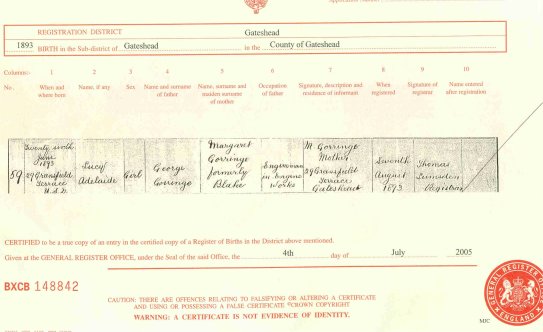 REGISTRATION DISTRICT Gateshead
1893 BIRTH in the Sub-district of Gateshead in the County of Gateshead
Columns:- 1 2 3 4 5 6 7 8 9 10
No. When and where born Name, if any Sex Name and surname of father Name, surname and maiden surname of mother Occupation of father Signature, description and residence of informant When registered Signature of registrar Name entered after registration
59
Twenty sixth
June
1893
29 Gransfield
Terrace
U.S.D.
Lucy
Adelaide
Girl
George
Gorringe
Margaret
Gorringe
formerly
Blake
Engineman
in Engine
Works
M. Gorringe
Mother
29 Gransfield
Terrace
Gateshead
Seventh
August
1893
Thomas
Lumsden
Registrar
CERTIFIED to be a true copy of an entry in the certified copy of a Register of Births in the District above mentioned.
Given at the GENERAL REGISTER OFFICE, under the Seal of the said Office, the 4th day of July 2005
BXCB 148842
CAUTION: THERE ARE OFFENCES RELATING TO FALSIFYING OR ALTERING A CERTIFICATE
AND USING OR POSSESSING A FALSE CERTIFICATE ©CROWN COPYRIGHT
WARNING: A CERTIFICATE IS NOT EVIDENCE OF IDENTITY.
GENERAL REGISTER OFFICE
ENGLAND
MJC